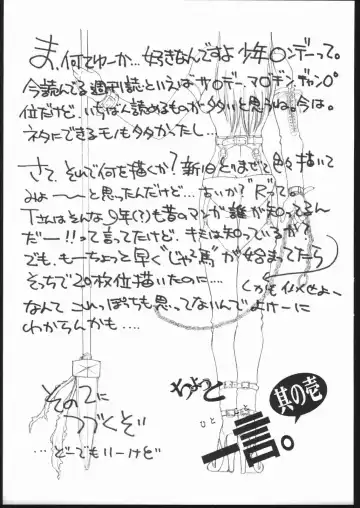 ま、何てゆーか…好きなんですよ少年○ンデーって。
今読んでる週刊誌といえばサ○デーマ○ヂンヂャン○゜
位だけど、いちばん読めるものが多いと思うね。今は。
ネタにできるモノも多かったし…
さて、それで何を描くか？新旧とりまぜて色々描いて
みよ〜〜〜と思ったんだけど…古いか？"R"っての
Tさんはそんな9年(?)も昔のマンガ誰が知ってるん
だー!!って言ってたけど、キミは知っているか？
でも、もーちょっと早く"じゃじゃ馬"が始まってたら
そっちで20枚位描いたのに…
しかもイメせよ〜
なんてこれっぽちも思ってないんでよけーに
わからんかも….
その2に
つづくぞ
…どーでもいーけど
ちょっと
一言。
ひと こと
其の壱